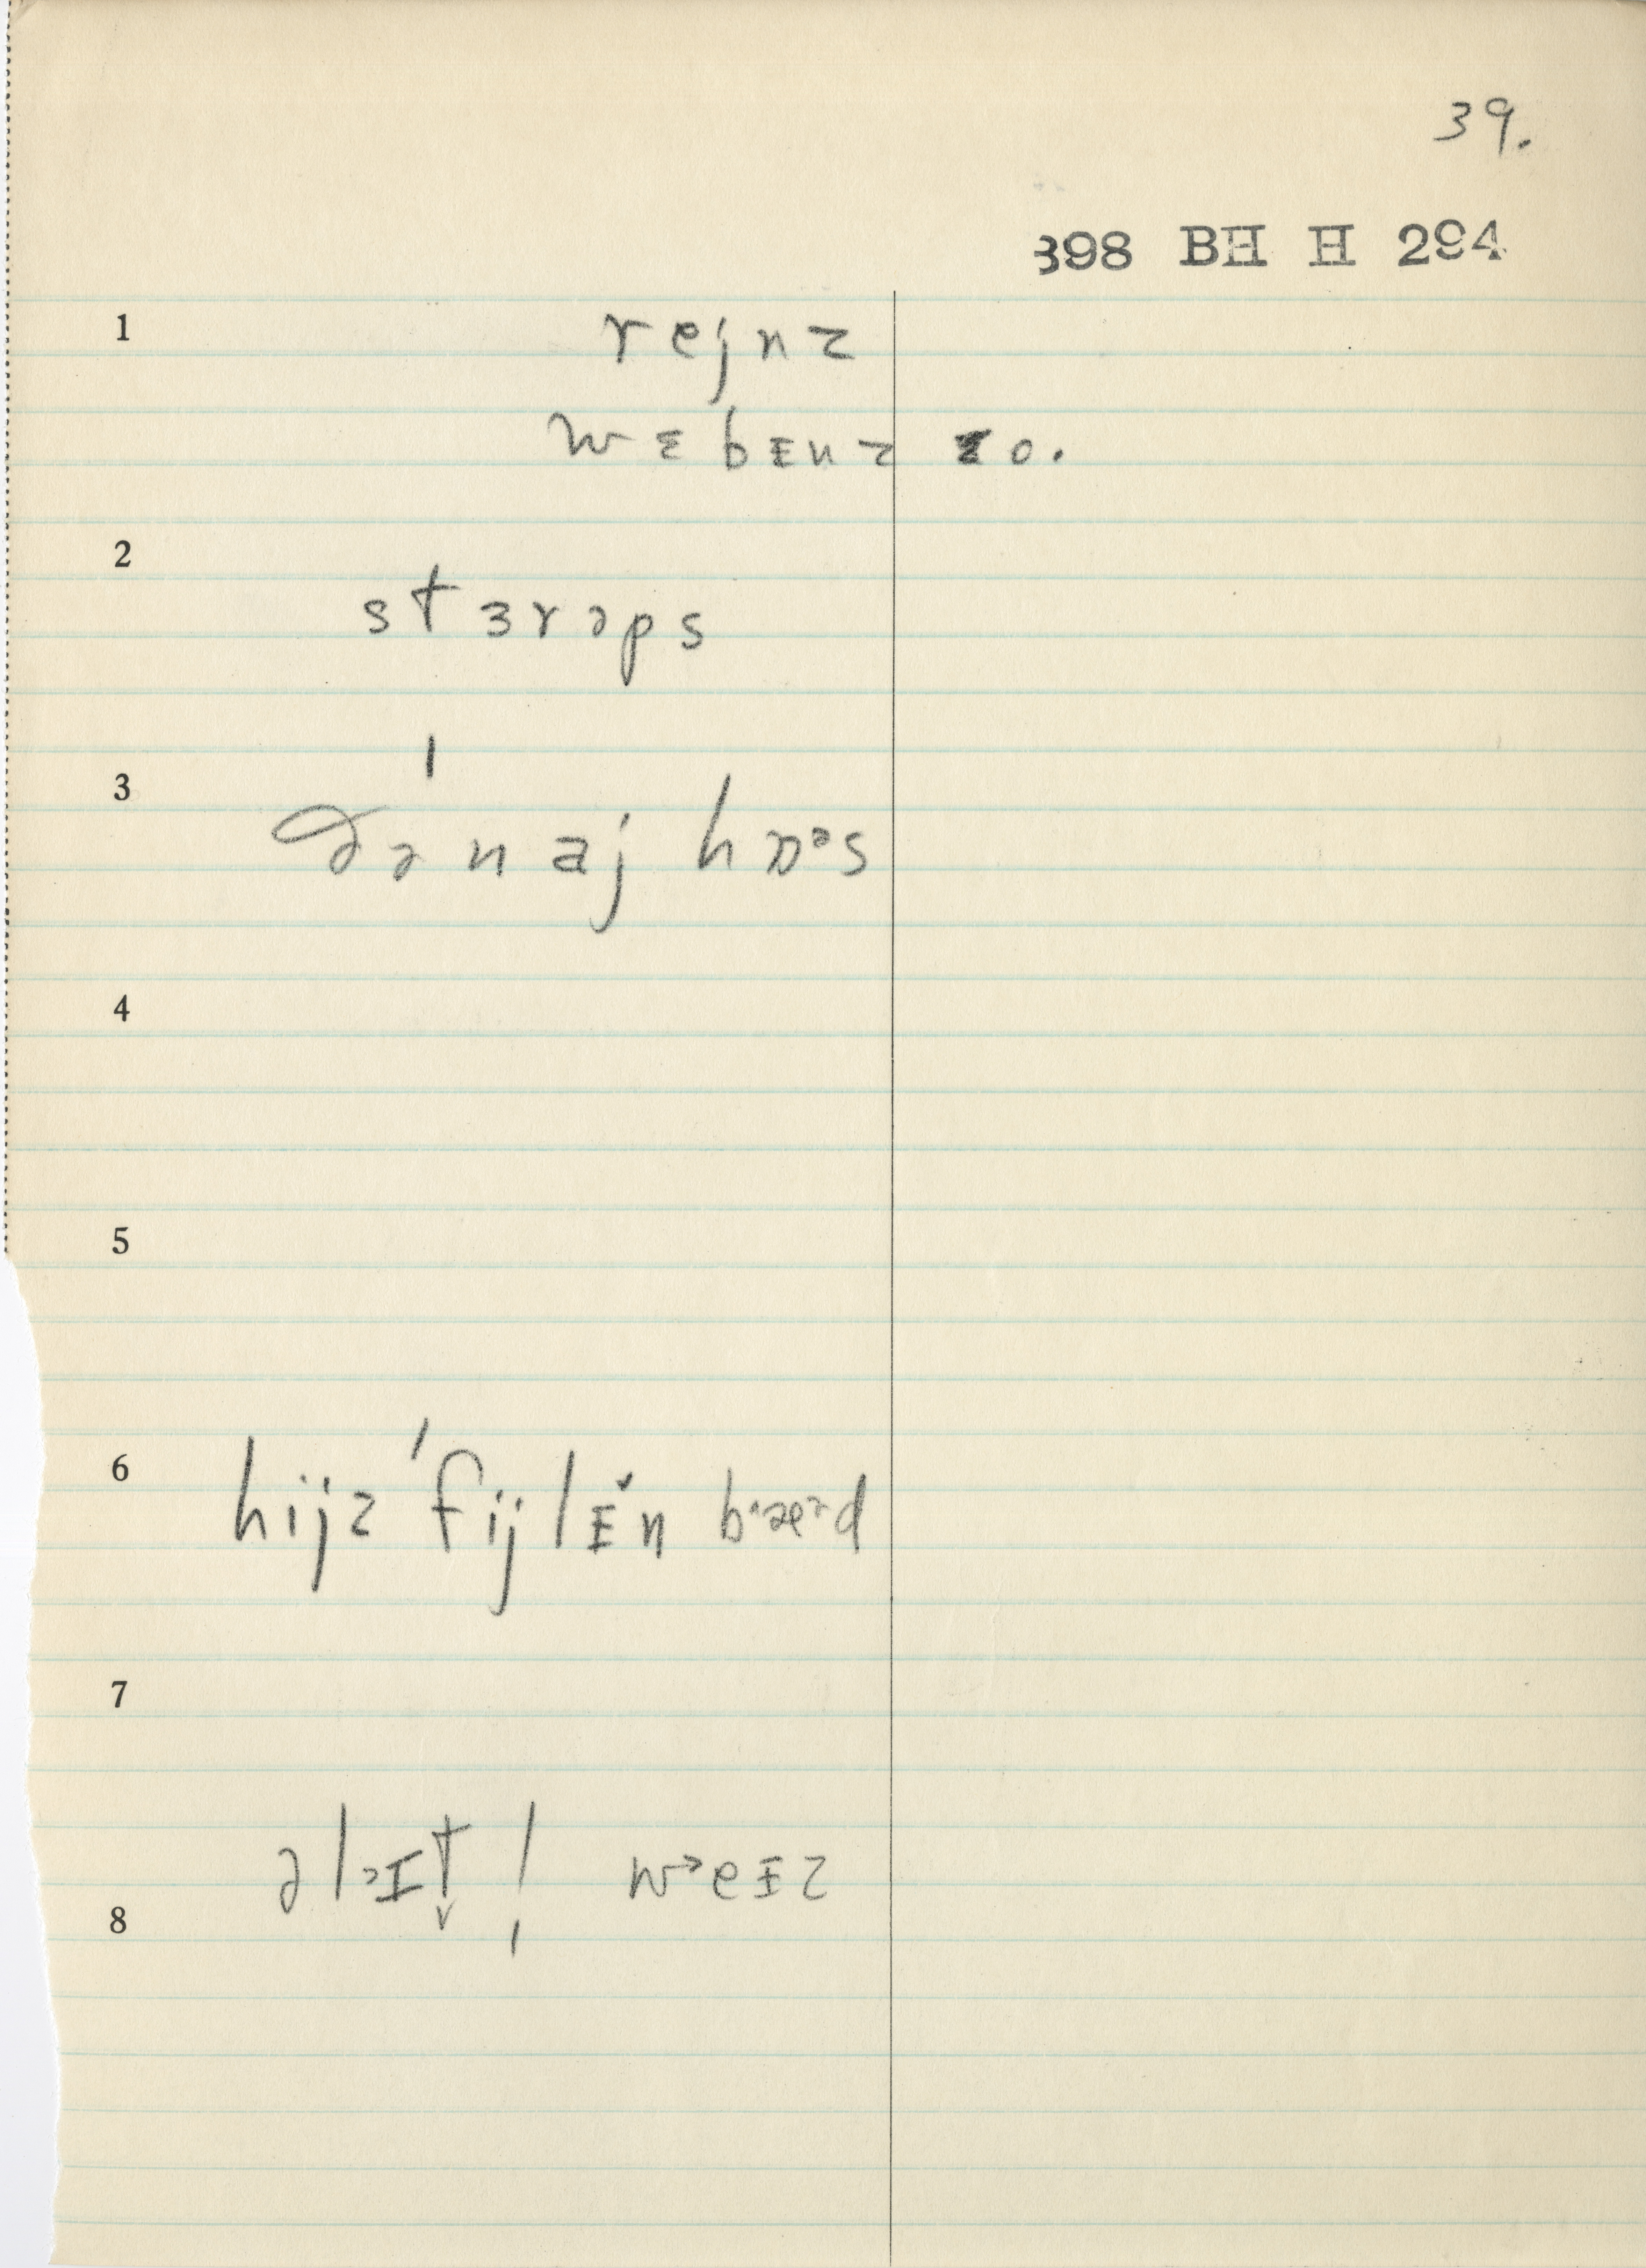 39.
398 BH H 294
1 rejnz
wɛbᵻnz zo.
2 stɜrəps
3 ðə naj hɒᵊs
4
5
6 hijz ˈfijlᵻ̌n bᵊæᵊd
7
əlᵊɪt̬ ! wᵊeᵻz
8